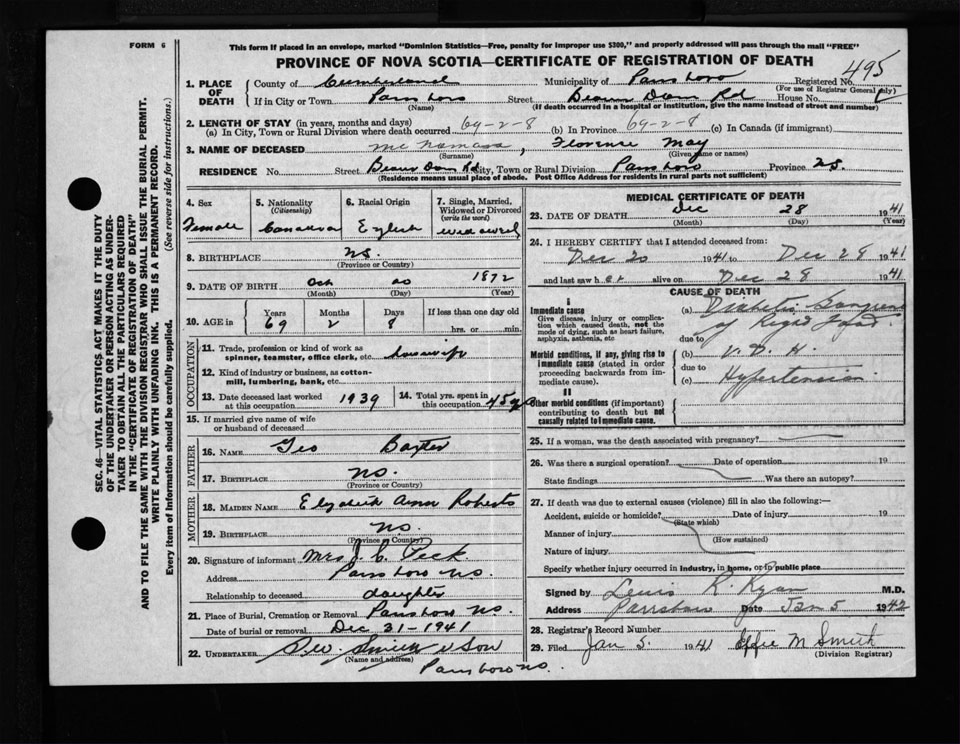 FORM 6
This form if placed in an envelope, marked "Dominion Statistics—Free, penalty for improper use $300," and properly addressed will pass through the mail "FREE"
PROVINCE OF NOVA SCOTIA—CERTIFICATE OF REGISTRATION OF DEATH
SEC. 46—VITAL STATISTICS ACT MAKES IT THE DUTY
OF THE UNDERTAKER OR PERSON ACTING AS UNDER-
TAKER TO OBTAIN ALL THE PARTICULARS REQUIRED
IN THE "CERTIFICATE OF REGISTRATION OF DEATH"
AND TO FILE THE SAME WITH THE DIVISION REGISTRAR WHO SHALL ISSUE THE BURIAL PERMIT.
WRITE PLAINLY WITH UNFADING INK. THIS IS A PERMANENT RECORD.
Every item of information should be carefully supplied. (See reverse side for instructions.)
1. PLACE OF DEATH County of Cumberland Municipality of Parrsboro Registered No. 495
(For use of Registrar General only)
If in City or Town Parrsboro Street Beaver Dam Rd House No.
(Name) (If death occurred in a hospital or institution, give the name instead of street and number)
2. LENGTH OF STAY (in years, months and days)
(a) In City, Town or Rural Division where death occurred 69-2-8 (b) In Province 69-2-8 (c) In Canada (if immigrant)
3. NAME OF DECEASED McNamara, Florence May
(Surname) (Given name or names)
RESIDENCE No. Street Beaver Dam Rd City, Town or Rural Division Parrsboro Province N.S.
(Residence means usual place of abode. Post Office Address for residents in rural parts not sufficient)
4. Sex Female
5. Nationality (Citizenship) Canadian
6. Racial Origin English
7. Single, Married, Widowed or Divorced (write the word) widowed
8. BIRTHPLACE N.S.
(Province or Country)
9. DATE OF BIRTH Oct 20 1872
(Month) (day) (Year)
10. AGE in Years Months Days If less than one day old
69 2 8 hrs. or min.
OCCUPATION
11. Trade, profession or kind of work as spinner, teamster, office clerk, etc. housewife
12. Kind of industry or business, as cotton-mill, lumbering, bank, etc.
13. Date deceased last worked at this occupation 1939
14. Total yrs. spent in this occupation 45 yrs
15. If married give name of wife or husband of deceased
FATHER
16. NAME Geo Baxter
17. BIRTHPLACE N.S.
(Province or Country)
MOTHER
18. MAIDEN NAME Elizabeth Ann Roberts
19. BIRTHPLACE N.S.
(Province or Country)
20. Signature of informant Mrs J. C. Peck
Address Parrsboro N.S.
Relationship to deceased daughter
21. Place of Burial, Cremation or Removal Parrsboro N.S.
Date of burial or removal Dec 31-1941
22. UNDERTAKER Smith & Son
(Name and address)
Parrsboro N.S.
MEDICAL CERTIFICATE OF DEATH
23. DATE OF DEATH Dec 28 1941
(Month) (Day) (Year)
24. I HEREBY CERTIFY that I attended deceased from:
Dec 20 1941 to Dec 28 1941
and last saw her alive on Dec 28 1941
CAUSE OF DEATH
I
Immediate cause
Give disease, injury or complication which caused death, not the mode of dying, such as heart failure, asphyxia, asthenia, etc
(a) Diabetic Gangrene
of Right Foot
due to
Morbid conditions, if any, giving rise to immediate cause (stated in order proceeding backwards from immediate cause).
(b) V. D. H.
due to
(c) Hypertension
II
Other morbid conditions (if important) contributing to death but not causally related to immediate cause.
25. If a woman, was the death associated with pregnancy?
26. Was there a surgical operation? Date of operation 19
State findings Was there an autopsy?
27. If death was due to external causes (violence) fill in also the following:—
Accident, suicide or homicide? Date of injury 19
(State which)
Manner of injury
(How sustained)
Nature of injury
Specify whether injury occurred in industry, in home, or in public place
Signed by Lewis R. Ryan M.D.
Address Parrsboro Date Jan 5 1942
28. Registrar's Record Number
29. Filed Jan 5. 1941 Effie M Smith
(Division Registrar)